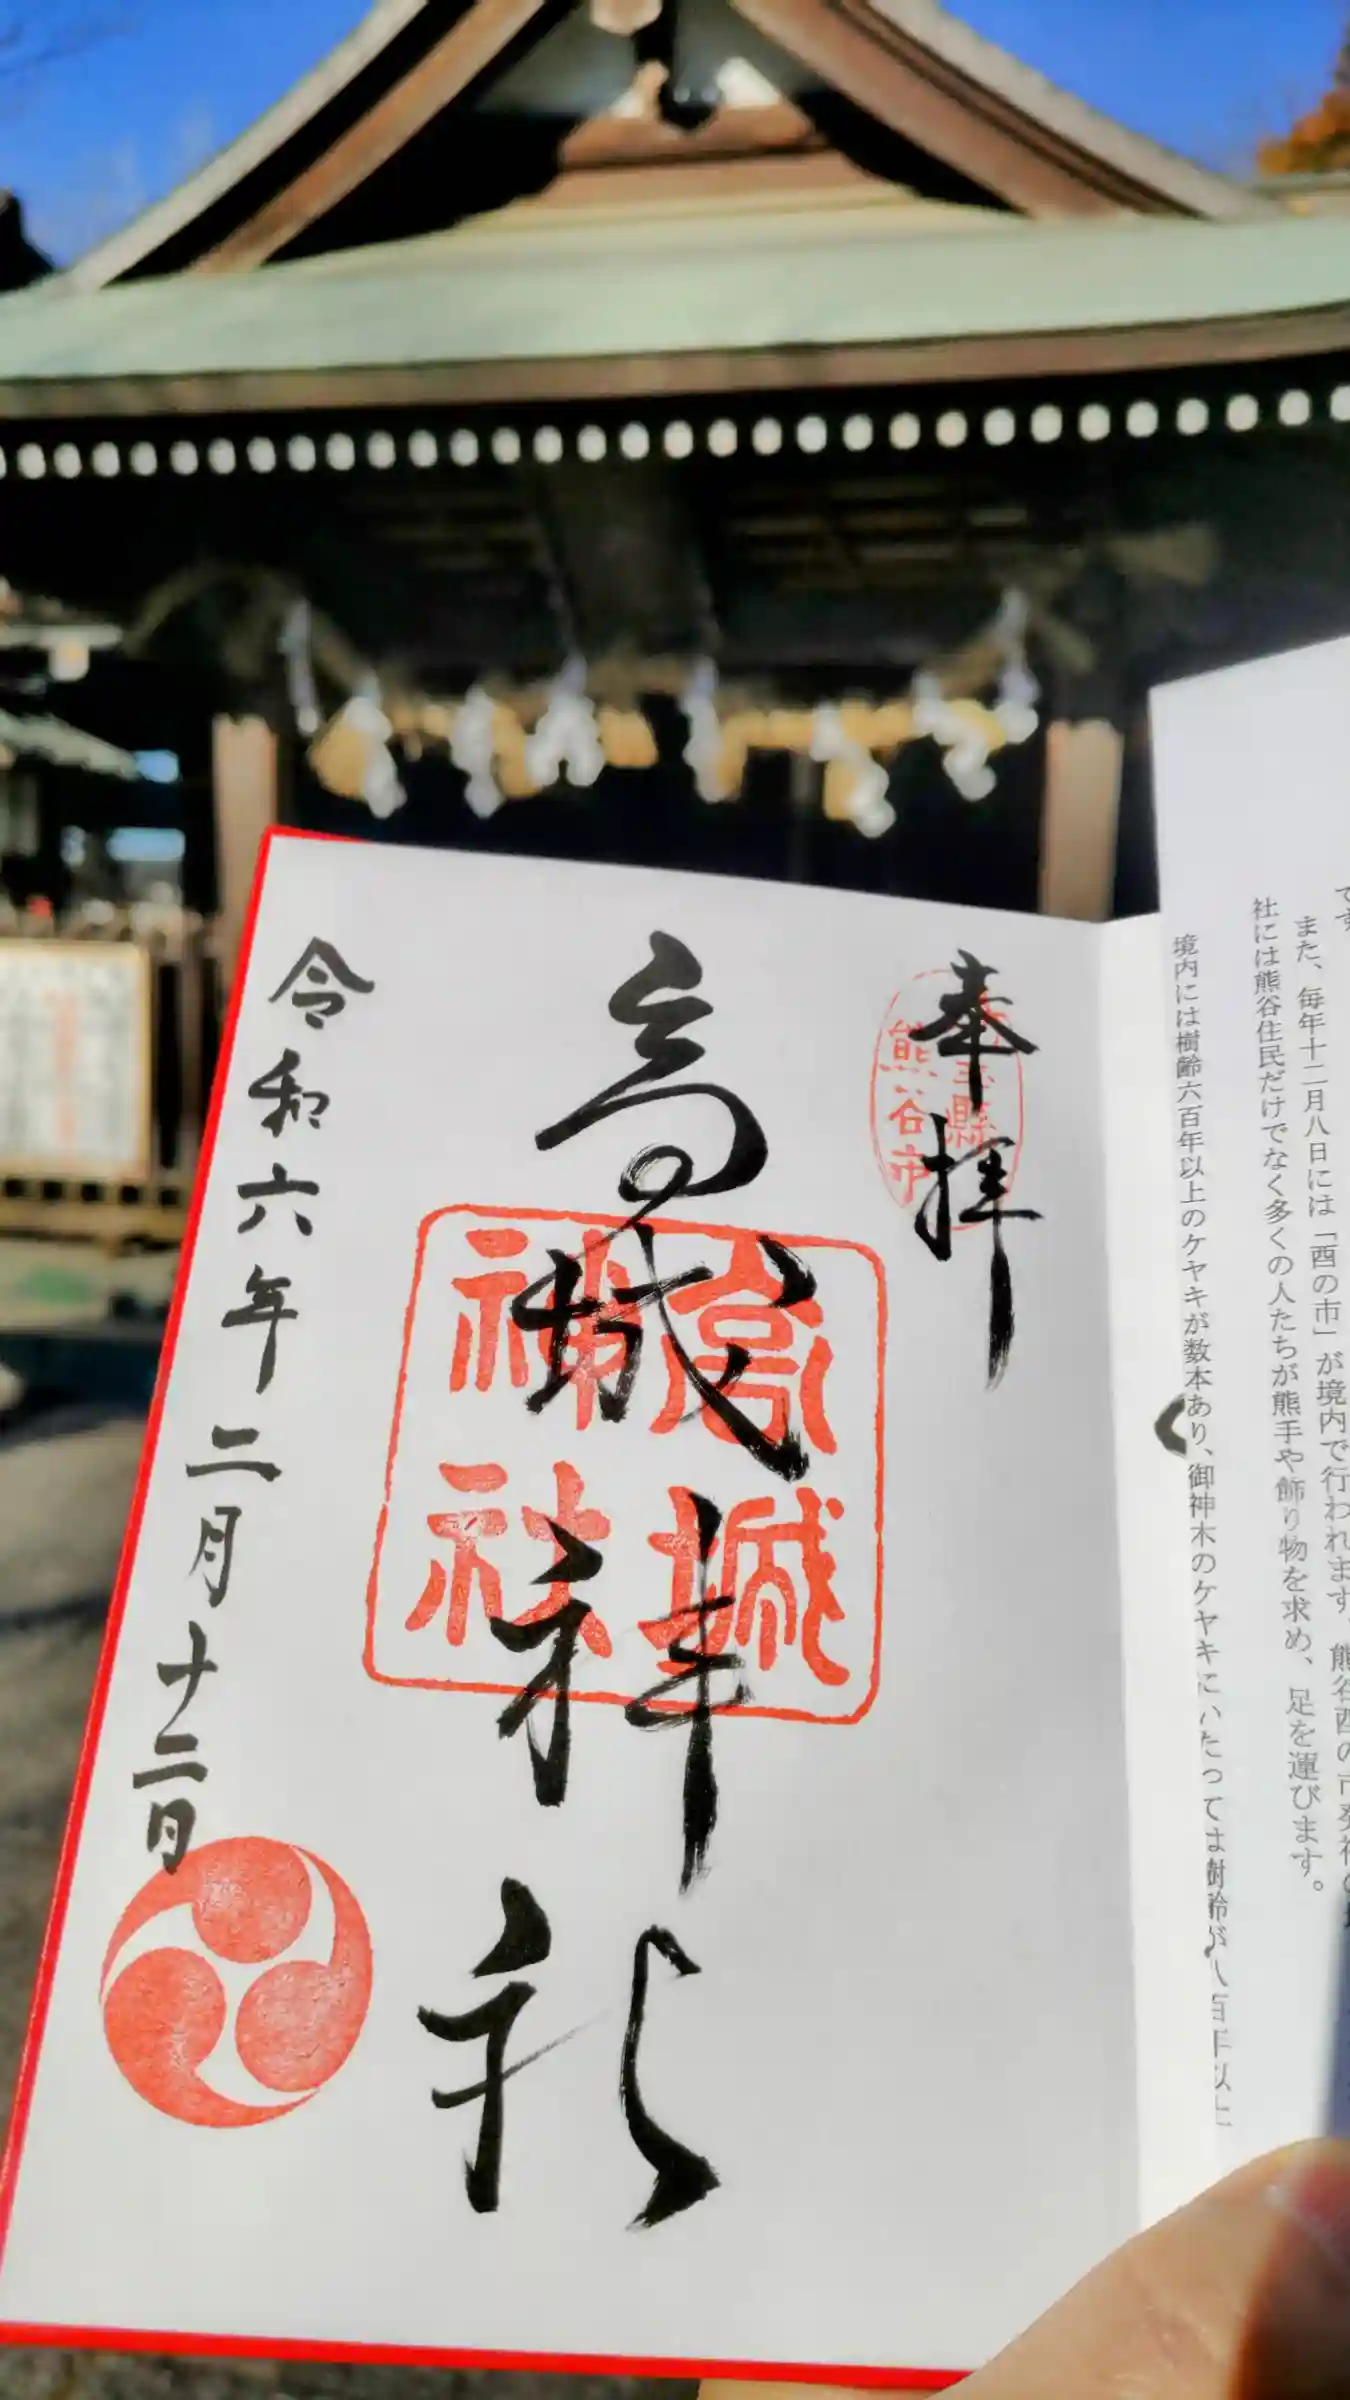 です
また、毎年十二月八日には「酉の市」が境内で行われます。熊谷酉の市発祥の
社には熊谷住民だけでなく多くの人たちが熊手や飾り物を求め、足を運びます。
境内には樹齢六百年以上のケヤキが数本あり、御神木のケヤキにいたっては樹齢が八百年以上
奉拝
熊谷市
高城神社
高城
神社
令和六年二月十二日